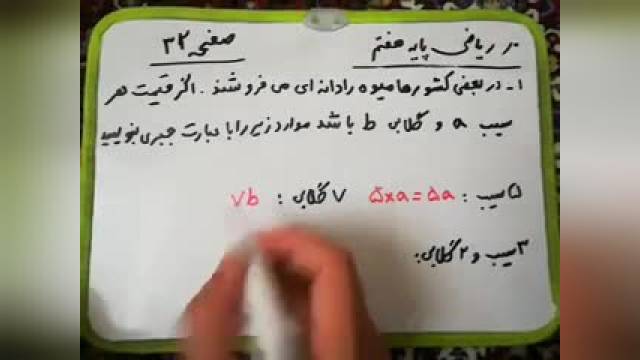 ریاضی پایه هفتم صفحه ۳۲
۱- در بعضی کشورها میوه را دانه ای می فروشند. اگر قیمت هر
سیب a و گلابی b باشد موارد زیر را با عبارت جبری بنویسید
۵ سیب: ۵×a=۵a ۷ گلابی: ۷b
۳ سیب و ۲ گلابی: